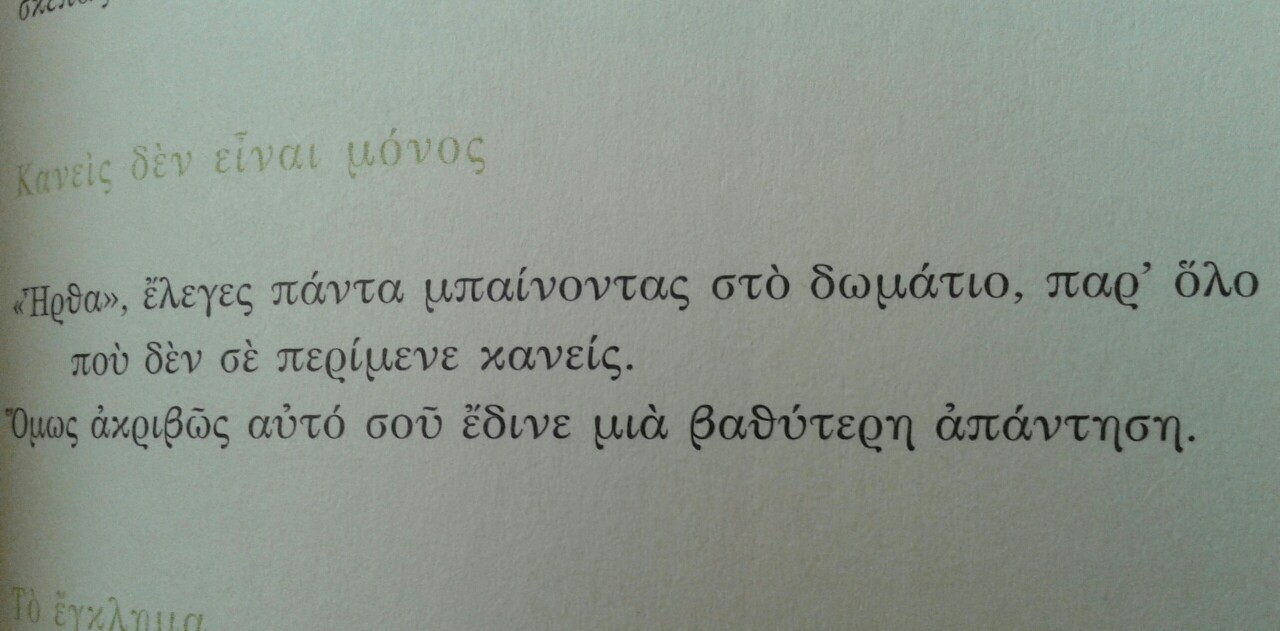 Κανεὶς δὲν εἶναι μόνος
«Ἦρθα», ἔλεγες πάντα μπαίνοντας στὸ δωμάτιο, παρ’ ὅλο
ποὺ δὲν σὲ περίμενε κανείς.
Ὅμως ἀκριβῶς αὐτό σοῦ ἔδινε μιὰ βαθύτερη ἀπάντηση.
Τὸ ἔγκλημα